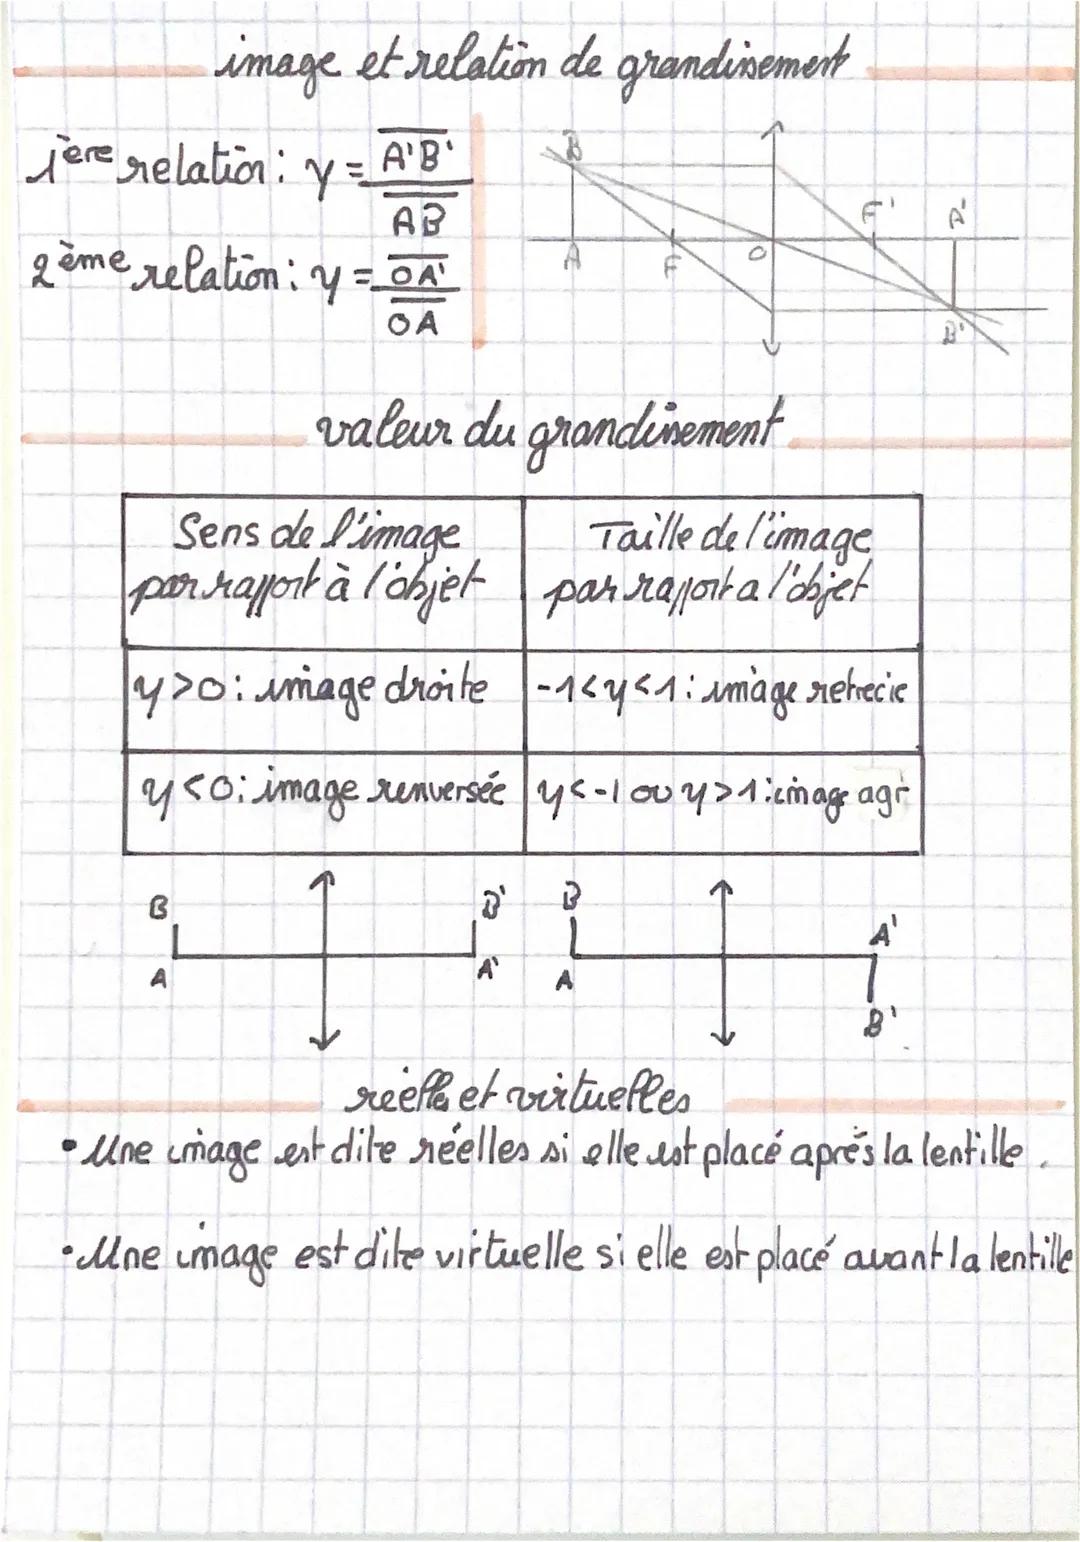 image et relation de grandissement
1ère relation : γ = A'B'
AB
2ème relation : γ = OA'
OA
B
A
F
O
F'
A'
B'
valeur du grandissement
Sens de l'image
par rapport à l'objet
Taille de l'image
par rapport a l'objet
γ>0 : image droite
-1<γ<1 : image retrecie
γ<0 : image renversée
γ<-1 ou γ>1 : image agr
B
A
B'
A'
B
A
A'
B'
réelles et virtuelles
• Une image est dite réelles si elle est placé après la lentille.
• Une image est dite virtuelle si elle est placé avant la lentille